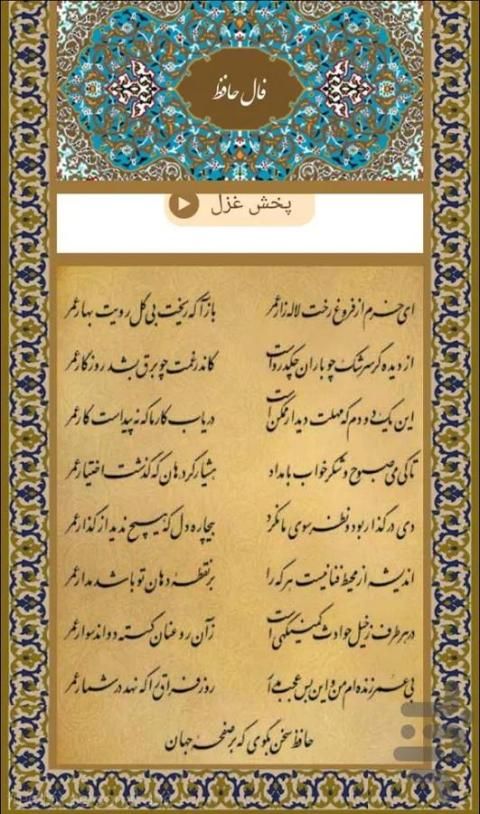 فال حافظ
پخش غزل
ای خرم از فروغ رخت لاله زار عمر بازآ که ریخت بی گل رویت بهار عمر
از دیده گر سرشک چو باران چکد رواست کاندر غمت چو برق بشد روزگار عمر
این یک دو دم که مهلت دیدار ممکن است دریاب کار ما که نه پیداست کار عمر
تا کی می صبوح و شکر خواب بامداد هشیار گرد هان که گذشت اختیار عمر
دی در گذار بود و نظر سوی ما نکرد بیچاره دل که هیچ ندید از گذار عمر
اندیشه از محیط فنا نیست هر که را بر نقطه دهان تو باشد مدار عمر
در هر طرف ز خیل حوادث کمینگهی است زان رو عنان گسسته دواند سوار عمر
بی عمر زنده ام من و این بس عجب مدار روز فراق را که نهد در شمار عمر
حافظ سخن بگوی که بر صفحه جهان